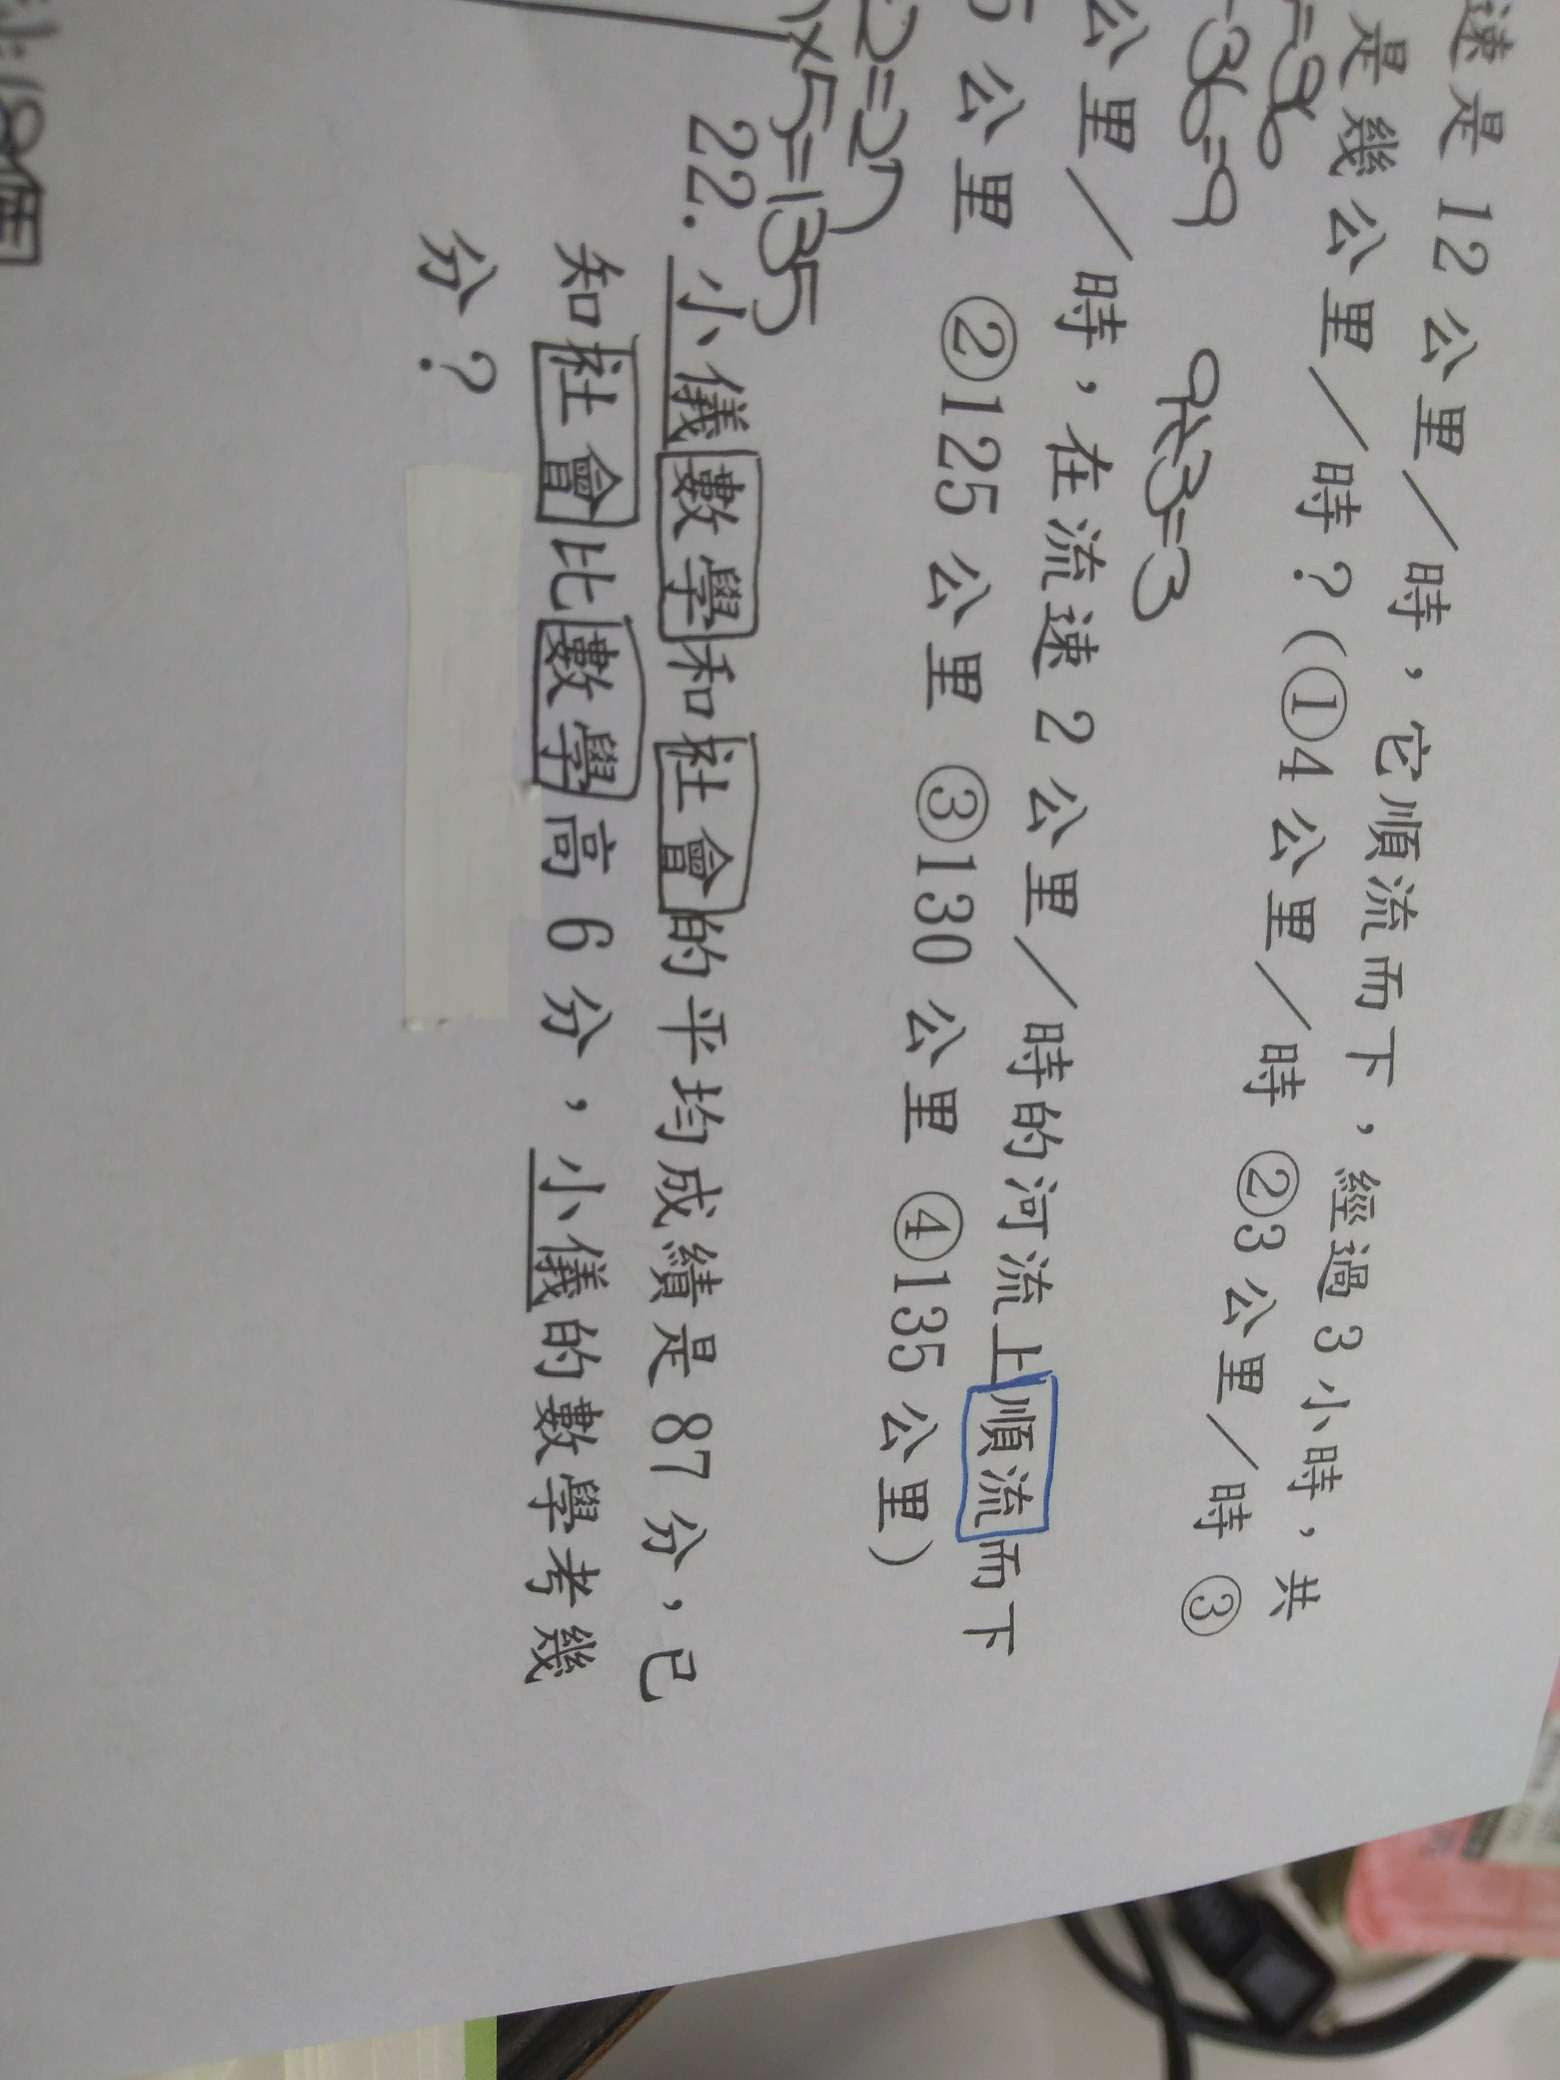 速是12公里／時，它順流而下，經過3小時，共
是幾公里／時？(①4公里／時 ②3公里／時 ③
-36=9
9÷3=3
公里／時，在流速2公里／時的河流上順流而下
5公里 ②125公里 ③130公里 ④135公里)
2=27
×5=135
22. 小儀數學和社會的平均成績是87分，已
知社會比數學高6分，小儀的數學考幾
分？
18個